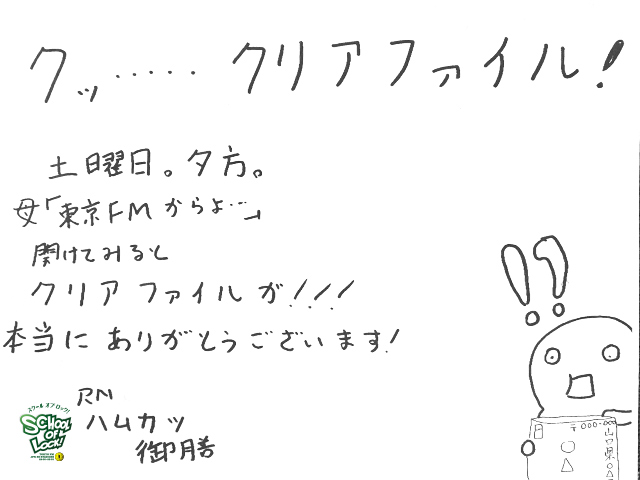 クッ‥‥‥クリアファイル!
土曜日。夕方。
母「東京FMからよ…」
開けてみると
クリアファイルが!!!
本当にありがとうございます!
RN
ハムカツ
御膳
スクール オブ ロック!
SCHOOL
OF
LOCK!
!?
〒000-00
山口県○△
○
△